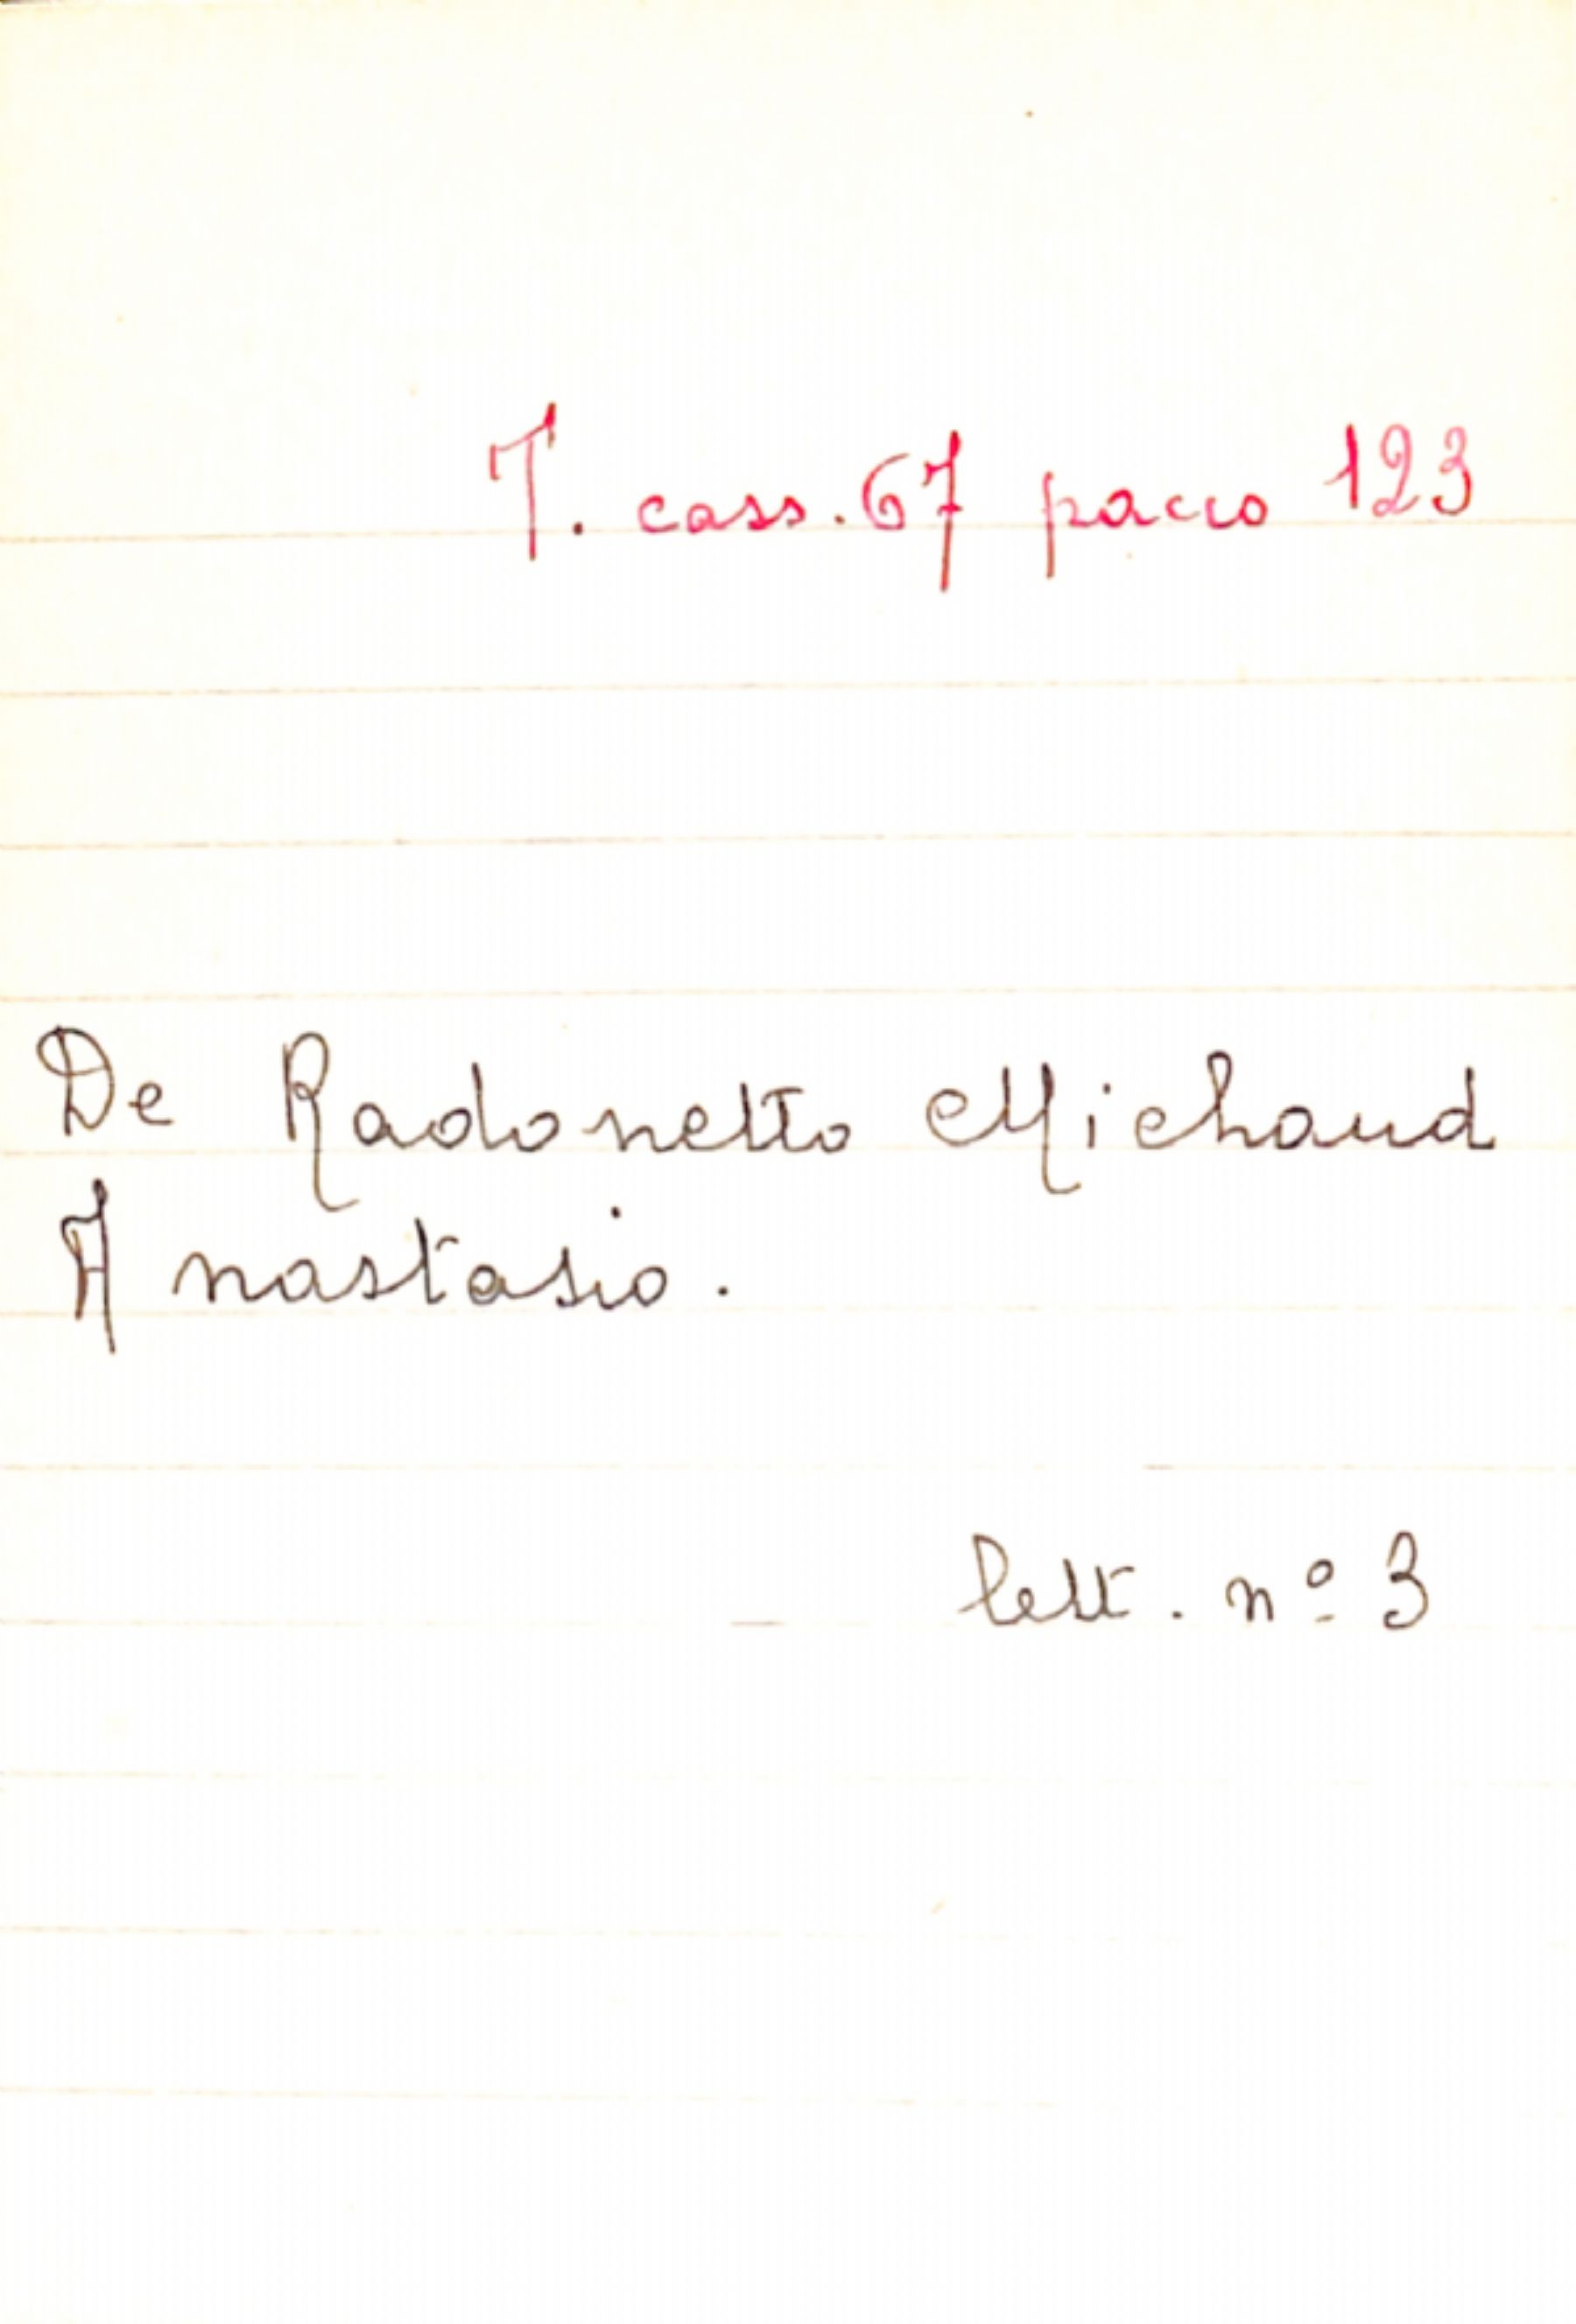 T. cass. 67 pacco 123
De Radonetto Michaud
Anastasio.
lett. nº 3